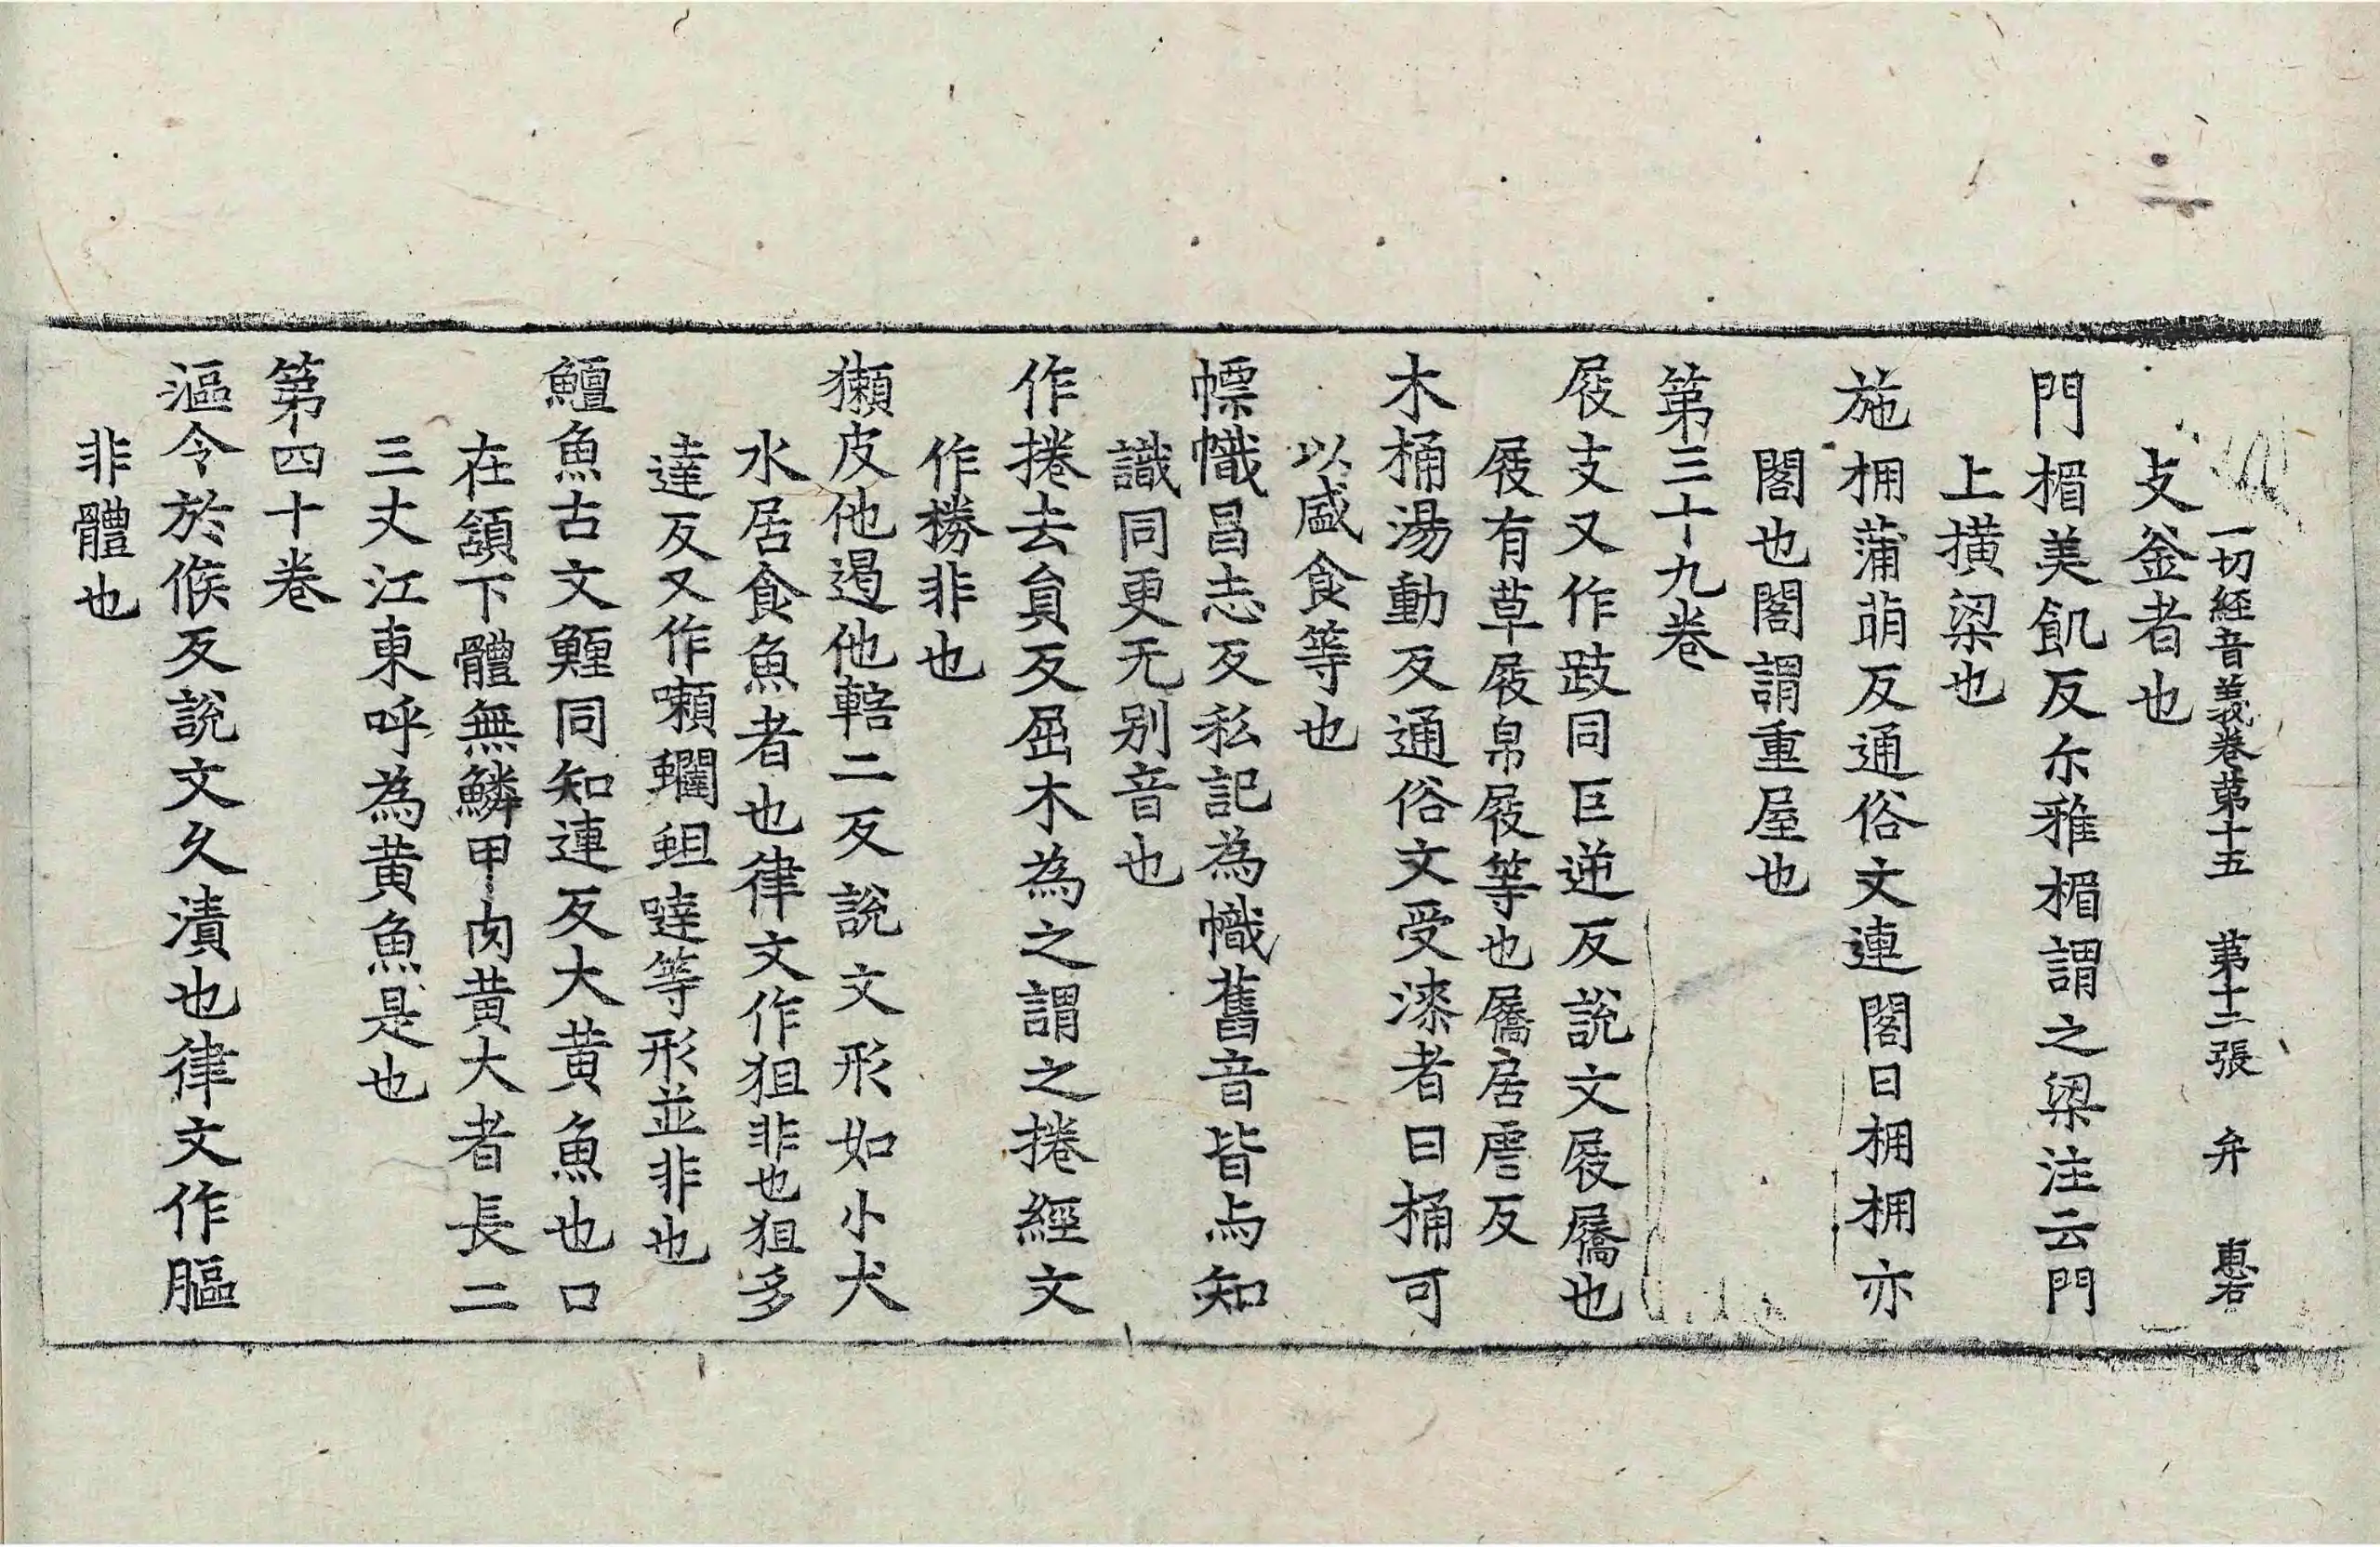 一切経音義卷第十五　第十二張　弁　惠右
攴釜者也
門楣美飢反尒雅楣謂之梁注云門
上橫梁也
施棚蒲萠反通俗文連閣曰棚棚亦
閣也閣謂重屋也
第三十九卷
屐支又作䟸同巨逆反說文屐屩也
屐有草屐帛屐等也屩居虐反
木桶湯動反通俗文受漆者曰桶可
以盛食等也
幖幟昌志反私記為幟舊音皆与知
識同更无別音也
作捲去員反屈木為之謂之捲經文
作捲非也
獺皮他遏他轄二反說文形如小犬
水居食魚者也律文作狚非也狚多
達反又作㘔蠝䖧噠等形並非也
鱣魚古文鱣同知連反大黃魚也口
在頷下體無鱗甲肉黃大者長二
三丈江東呼為黃魚是也
第四十卷
漚令於候反說文久漬也律文作膒
非體也